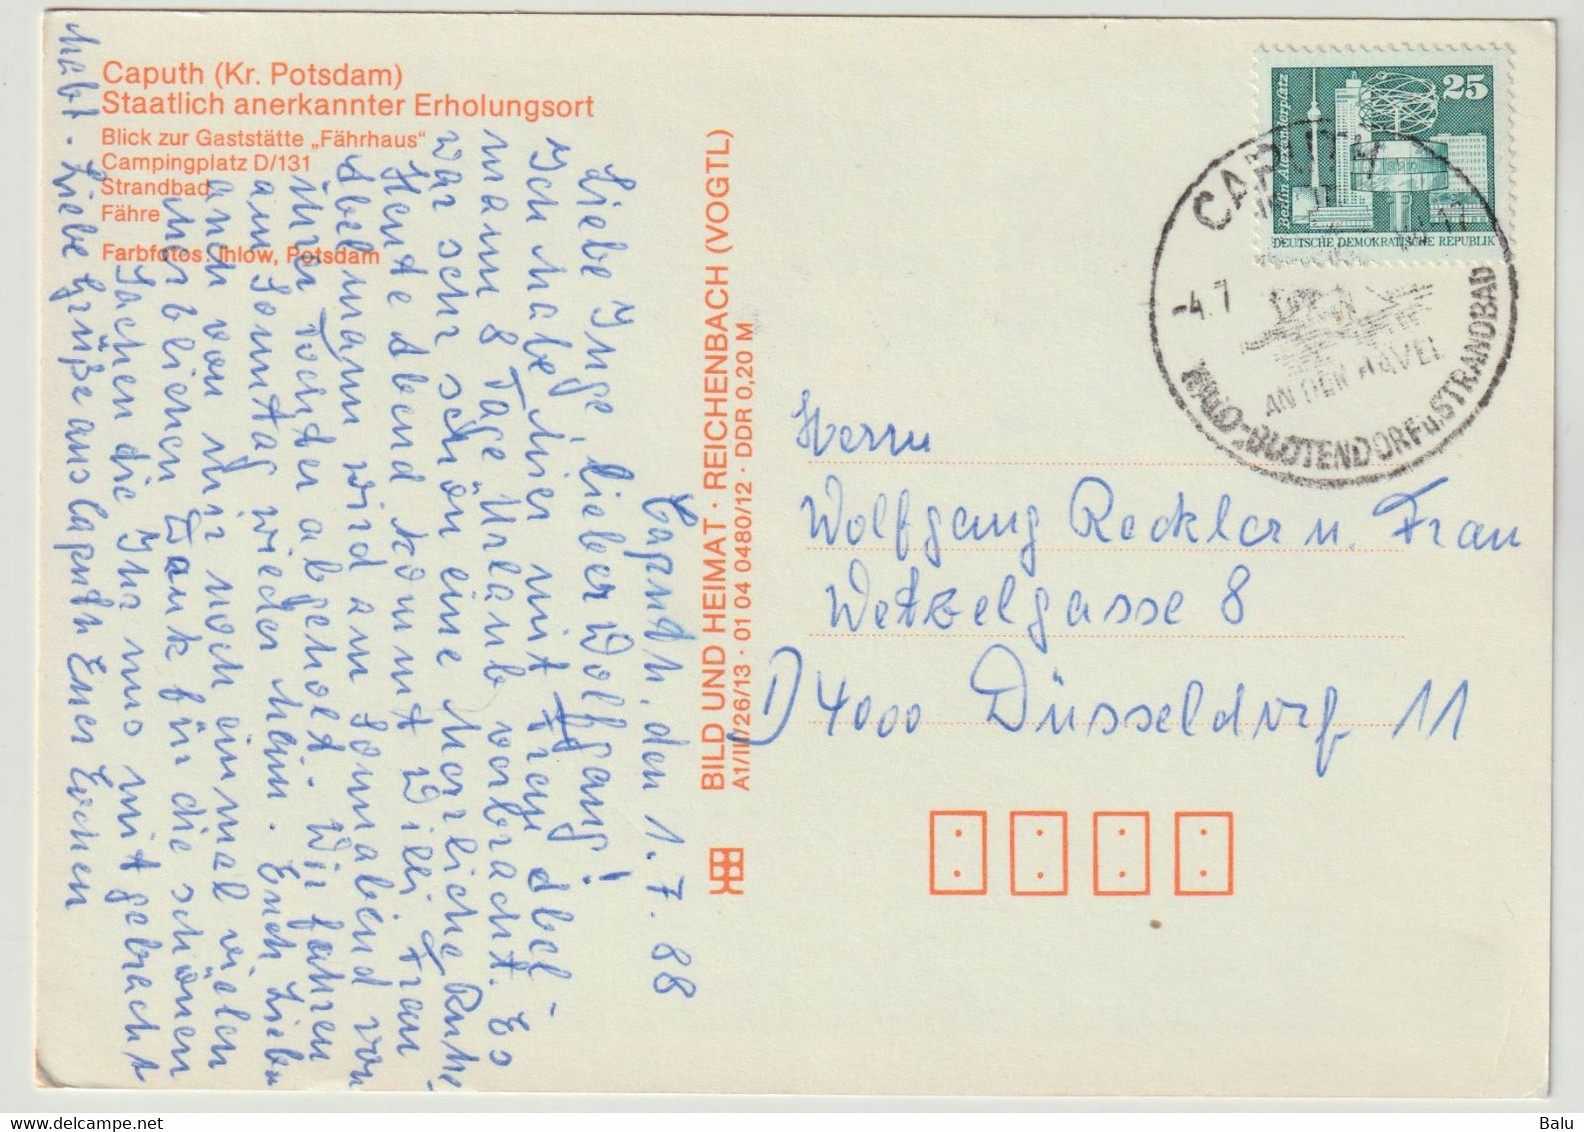 Caputh (Kr. Potsdam)
Staatlich anerkannter Erholungsort
Blick zur Gaststätte „Fährhaus“
Campingplatz D/131
Strandbad
Fähre
Farbfotos: Ihlow, Potsdam
BILD UND HEIMAT · REICHENBACH (VOGTL)
A1/III/26/13 · 01 04 0480/12 · DDR 0,20 M
Caputh, den 1.7.88
Liebe Inge, lieber Wolfgang!
Ich habe hier mit Frau Abel-
mann 8 Tage Urlaub verbracht. Es
war sehr schön eine herrliche Ruhe
Heute Abend kommt Willi, Frau
Abelmann wird am Sonnabend von
ihrer Tochter abgeholt. Wir fahren
am Sonntag wieder heim. Euch Lieben
auch von mir noch einmal vielen
herzlichen Dank für die schönen
Sachen die Ihr uns mitgebracht
habt. Liebe Grüße aus Caputh Euer
25
Berlin Alexanderplatz
DEUTSCHE DEMOKRATISCHE REPUBLIK
CAPUTH
-4.7
AN DER HAVEL
WALD-BLÜTENDORF u. STRANDBAD
Herrn
Wolfgang Recklar u. Frau
Wetzelgasse 8
D 4000 Düsseldorf 11
Balu